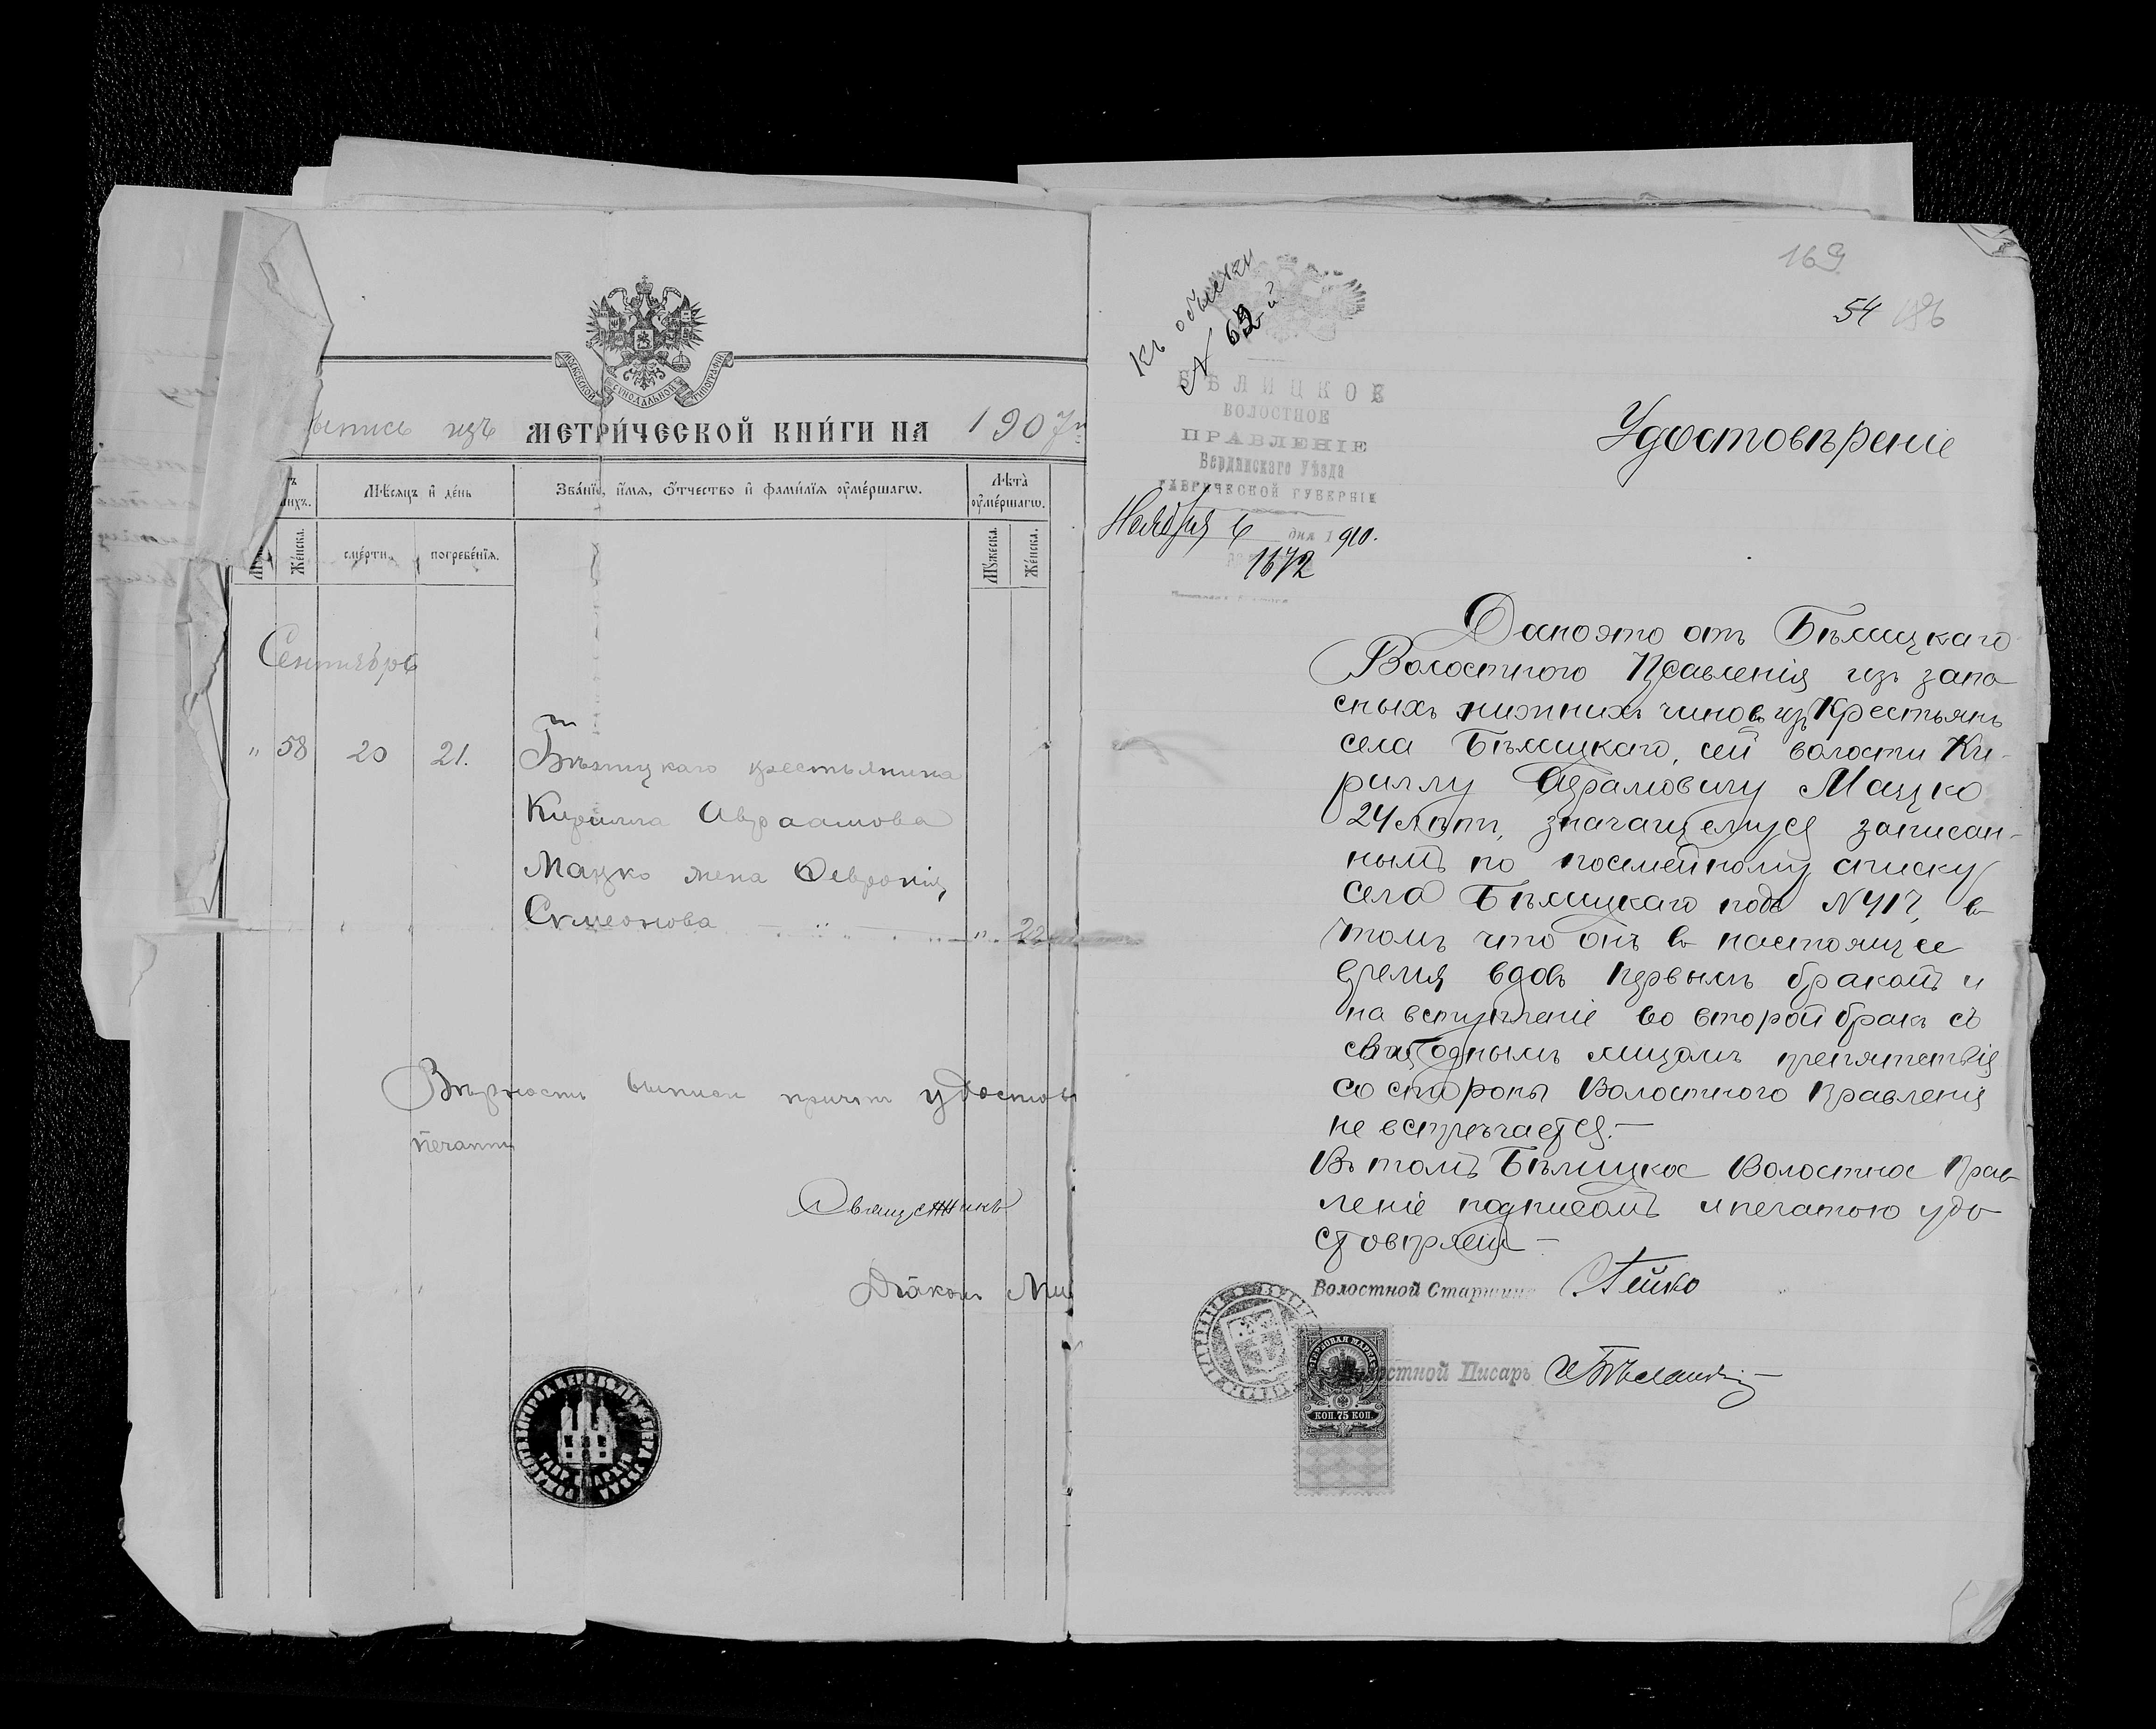 МОСКОВСКОЙ СѴНОДАЛЬНОЙ ТИПОГРАФІИ
изъ МЕТРИ́ЧЕСКОЙ КНИ́ГИ НА 1907 г.
Мѣсяцъ и҆ де́нь
Зва́нїе, и҆́мѧ, ѻ҆́тчество и҆ фами́лїѧ оу҆ме́ршагѡ.
Лѣта̀ оу҆ме́ршагѡ.
Же́нска.
сме́рти.
погребе́нїѧ.
Мꙋ́жеска.
Же́нска.
Сентябрь
" 58 20 21. Бѣлицкаго крестьянина
Кирилла Авраамова
Мацко жена Февронія
Сѵмеонова " 22
Вѣрность выписи причтъ удостов
печати
Священникъ
Діаконъ Ми
ТАВР. ЕПАРХІИ
169
54 186
Къ обыску
№ 69й
БѢЛИЦКОЕ
ВОЛОСТНОЕ
ПРАВЛЕНІЕ
Бердянскаго Уѣзда
ТАВРИЧЕСКОЙ ГУБЕРНІИ
Ноября 6 дня 1910.
1672
Удостовѣреніе
Дано это отъ Бѣлицкаго
Волостного Правленія изъ запа
сныхъ нижнихъ чиновъ изъ Крестьянъ
села Бѣлицкаго, сей волости Ки-
риллу Абрамовичу Мацко
24 лѣтъ, значащемуся записан-
нымъ по посемейному списку
села Бѣлицкаго подъ №417, въ
томъ что онъ въ настоящее
время вдовъ первымъ бракомъ и
на вступленіе во второй бракъ съ
свободнымъ лицомъ препятствія
со стороны Волостного Правленія
не встрѣчается.—
Въ томъ Бѣлицкое Волостное Прав
леніе подписомъ и печатью удо
стовѣряетъ—
Волостной Старшина Гейко
Волостной Писарь
ГЕРБОВАЯ МАРКА
КОП. 75 КОП.